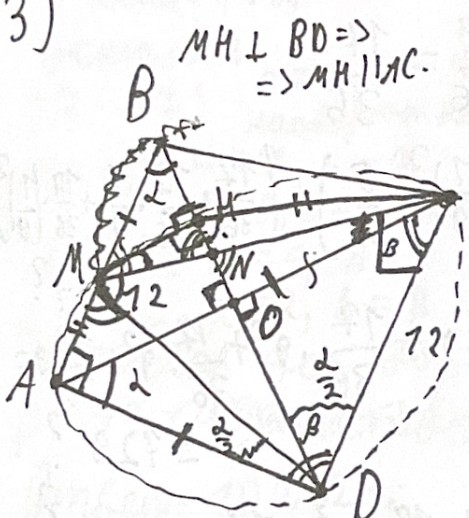 3)
MH ⊥ BD =>
=> MH || AC.
B
α
H
H
M
N
12
O
β
12
A
α
α/2
α/2
β
D